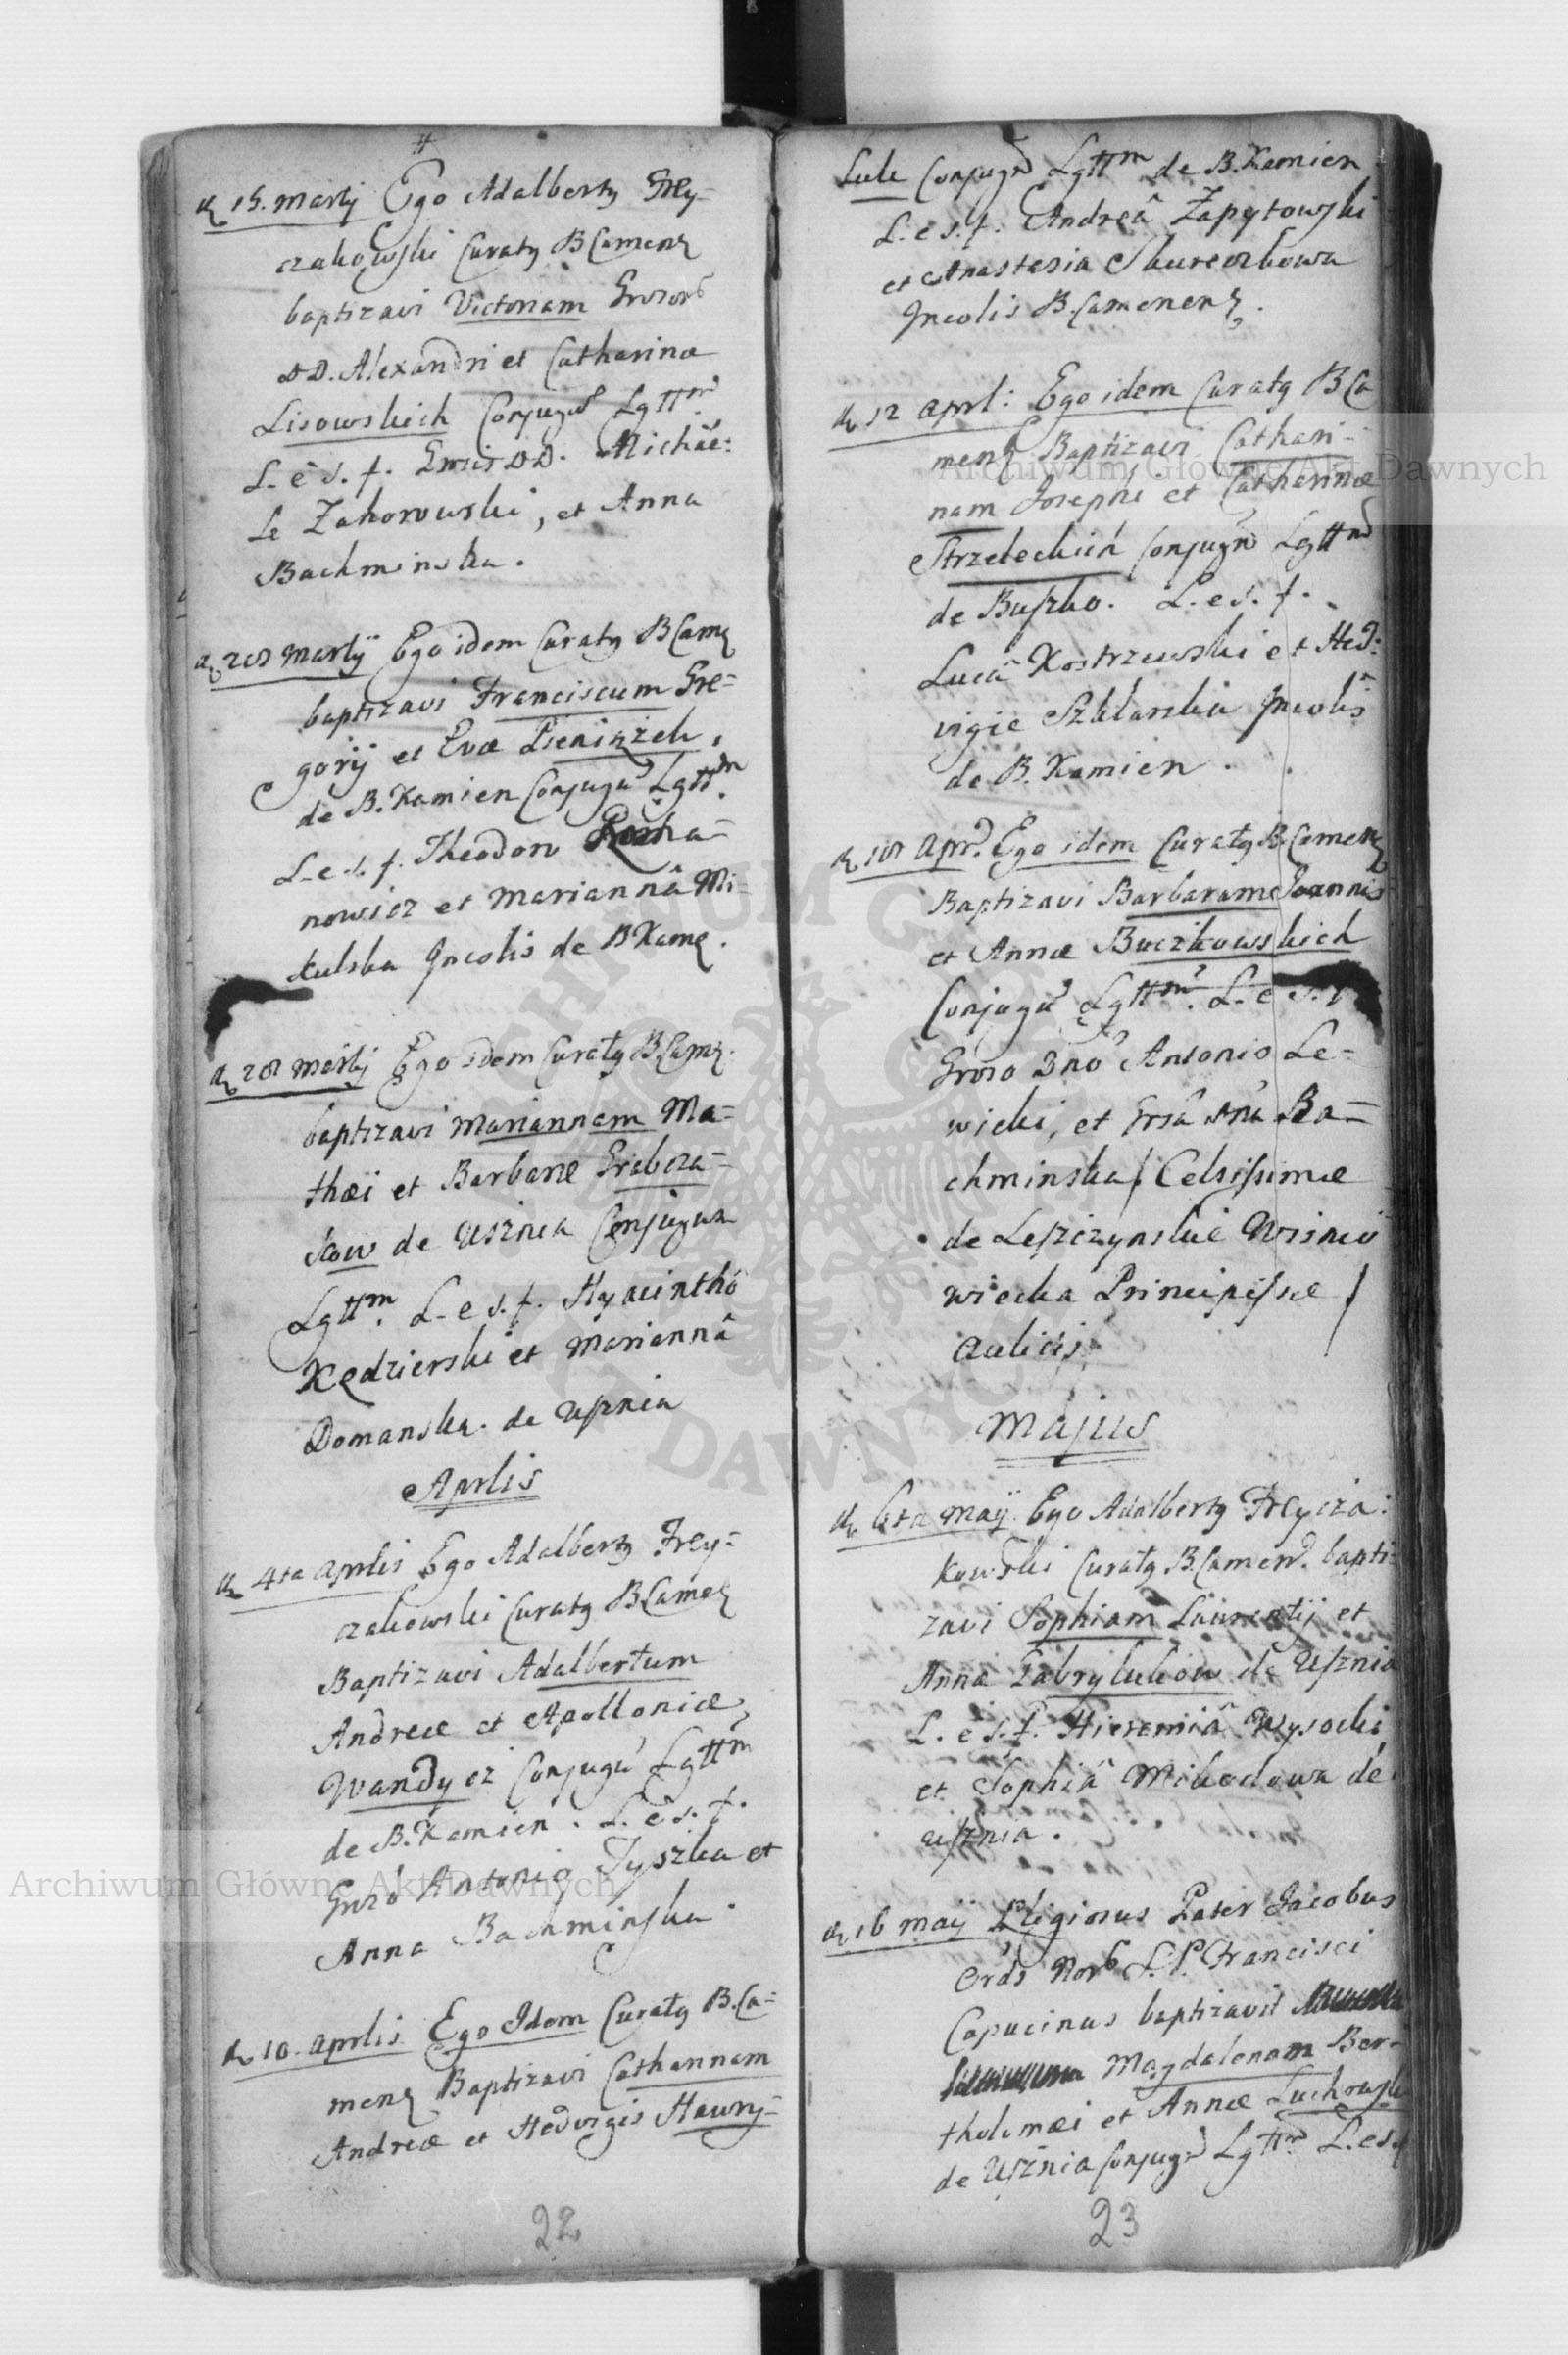 15. Martij Ego Adalbertꝰ Frey-
czakowski Curatꝰ B Camenꝭ
baptizavi Victoriam Grosorꝭ
DD. Alexandri et Catharinæ
Lisowskich Conjugũ Lgttm̃
L. e s. f. Grosis DD. Michäe:
le Zahorowski, et Anna
Bachminska.
28 Martij Ego idem Curatꝰ B Camꝭ
baptizavi Franciscum Gre-
gorij et Evæ Pieniązek,
de B. Kamien Conjugũ Lgttm̃
L. e s. f. Theodoro
nowicz et Mariannâ Mi-
kulska Incolis de B Kamꝭ.
28 Martij Ego idem Curatꝰ B. Camꝭ.
baptizavi Mariannam Ma-
thæi et Barbaræ Grabcza-
kow de Usznia Conjugum
Lgttm̃. L. e s. f. Hyacinthô
Kędzierski et Mariannâ
Domanska. de Usznia
Aprlis
4ta Aprlis Ego Adalbertꝰ Frey-
czakowski Curatꝰ B Camenꝭ
Baptizavi Adalbertum
Andreæ et Apolloniæ
Wandycz Conjugũ Lgttm̃
de B. Kamien. L. e s. f.
Grosô Antonio Tyszka et
Anna Bachminska.
10. Aprlis Ego Idem Curatꝰ B. Ca-
menꝭ Baptizavi Catharinam
Andreæ et Hedvigis Hawry-
22
lule Conjugũ Lgttm̃ de B. Kamien
L. e s. f. Andreâ Zapytowski
et Anastasia Skureczkowa
Incolis B. Camenenꝭ.
12 Aprl: Ego idem Curatꝰ B Ca
menꝭ Baptizavi Cathari-
nam Josephi et Catharinæ
Strzeleckich Conjugũ Lgttm̃
de Buszko. L. e s. f.
Lucâ Kostrzewski et Hed:
vigie Szklarska Incolis
de B. Kamien.
18 Aprl. Ego idem Curatꝰ B. Camenꝭ
Baptizavi Barbaram Joannis
et Annæ Buczkowskich
Conjugũ Lgttm̃. L. e s. f.
Groso Dno Antonio Le-
wicki, et Grsâ Dnâ Ba-
chminska / Celsissimæ
de Leszczynskie Wisnio
wiecka Principissæ /
Aulicis
Majus
6ta Maij Ego Adalbertꝰ Freycza:
kowski Curatꝰ B. Camen. bapti-
zavi Sophiam Laurentij et
Annæ Gabrylukow de Usznia
L. e s. f. Hieremiâ Wysocki
et Sophiâ Mikodowa de
Usznia.
16 Maij Religiosus Pater Jacobus
Ords S. P. Francisci
Capucinus baptizavit
Magdalenam Bar-
tholomæi et Annæ Luchowski
de Usznia Conjugũ Lgttm̃ L. e s. f
23
Archiwum Główne Akt Dawnych
Archiwum Główne Akt Dawnych